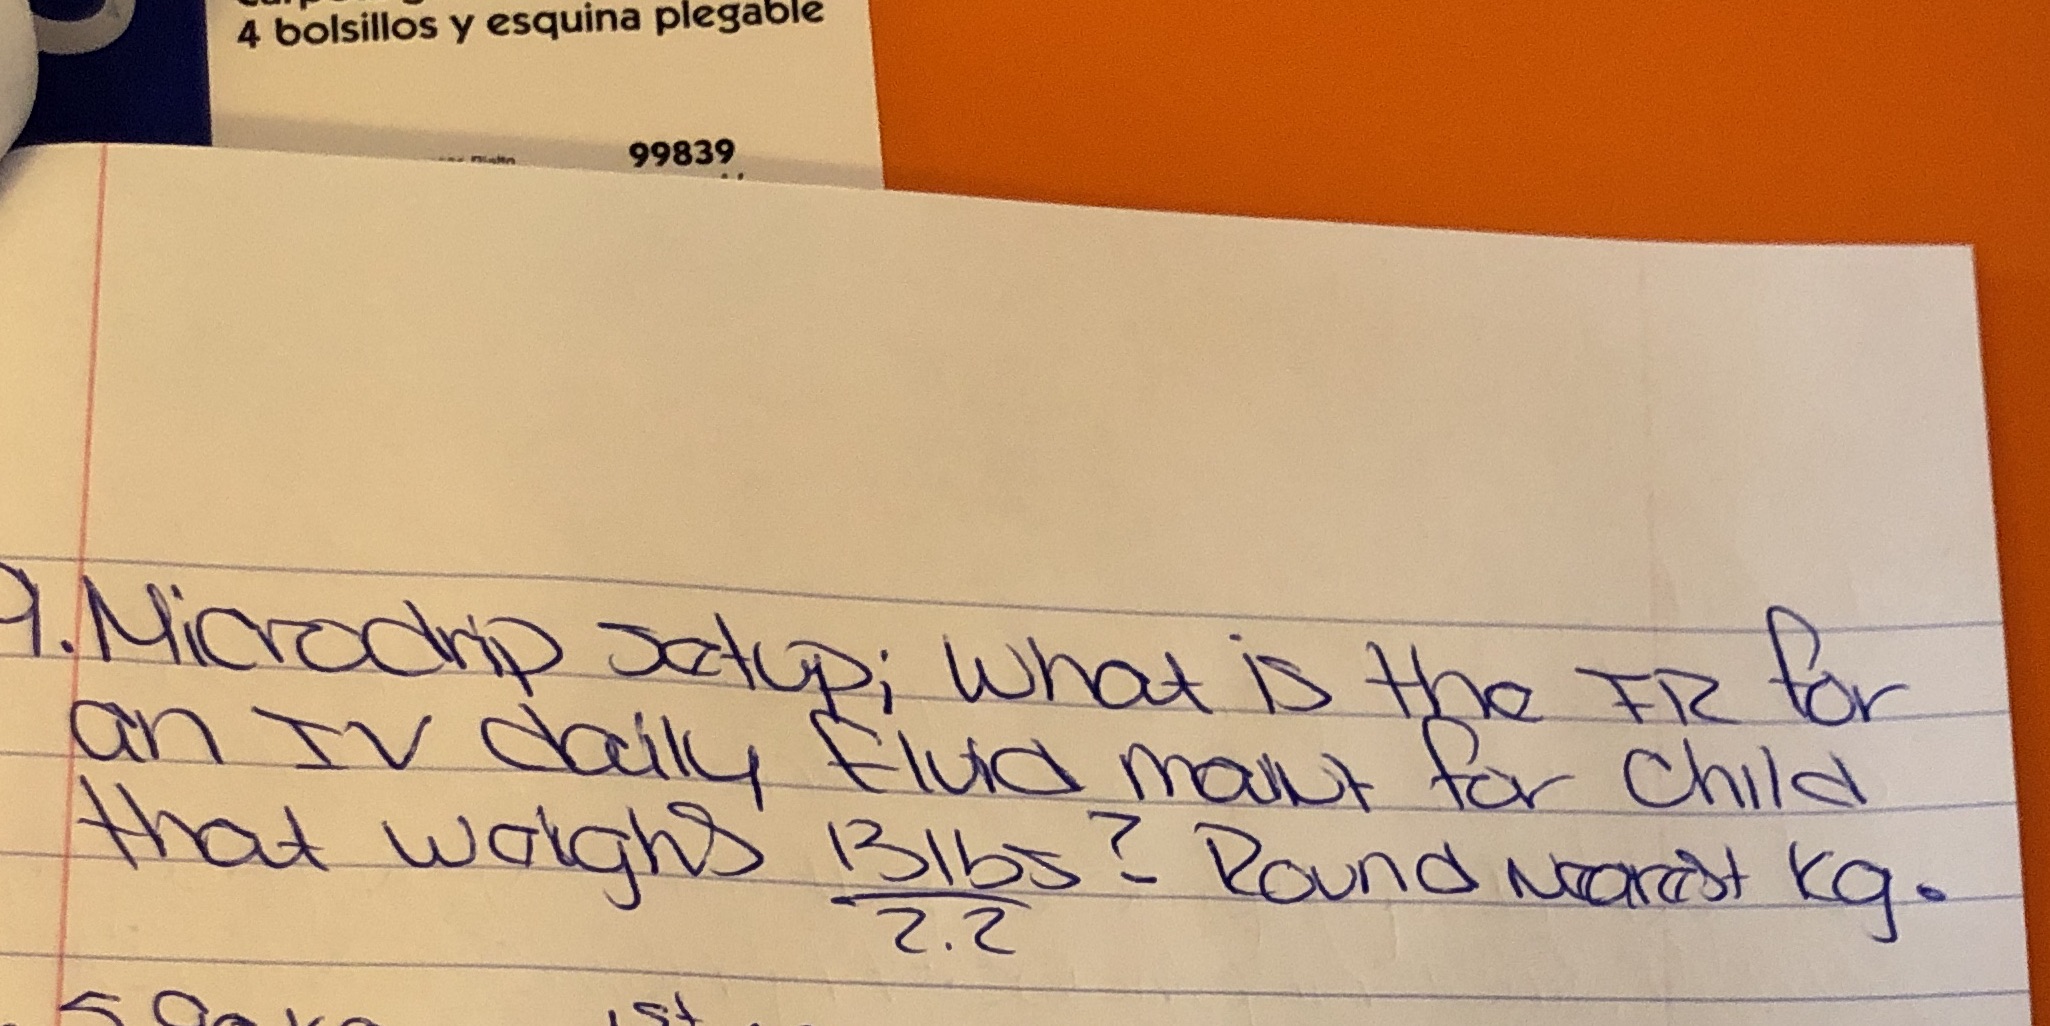 4 bolsillos y esquina plegable
99839
9. Microdrip setup; What is the IR for
an IV daily fluid maint for Child
that weighs 13lbs? Round Nearest kg.
2.2
1st